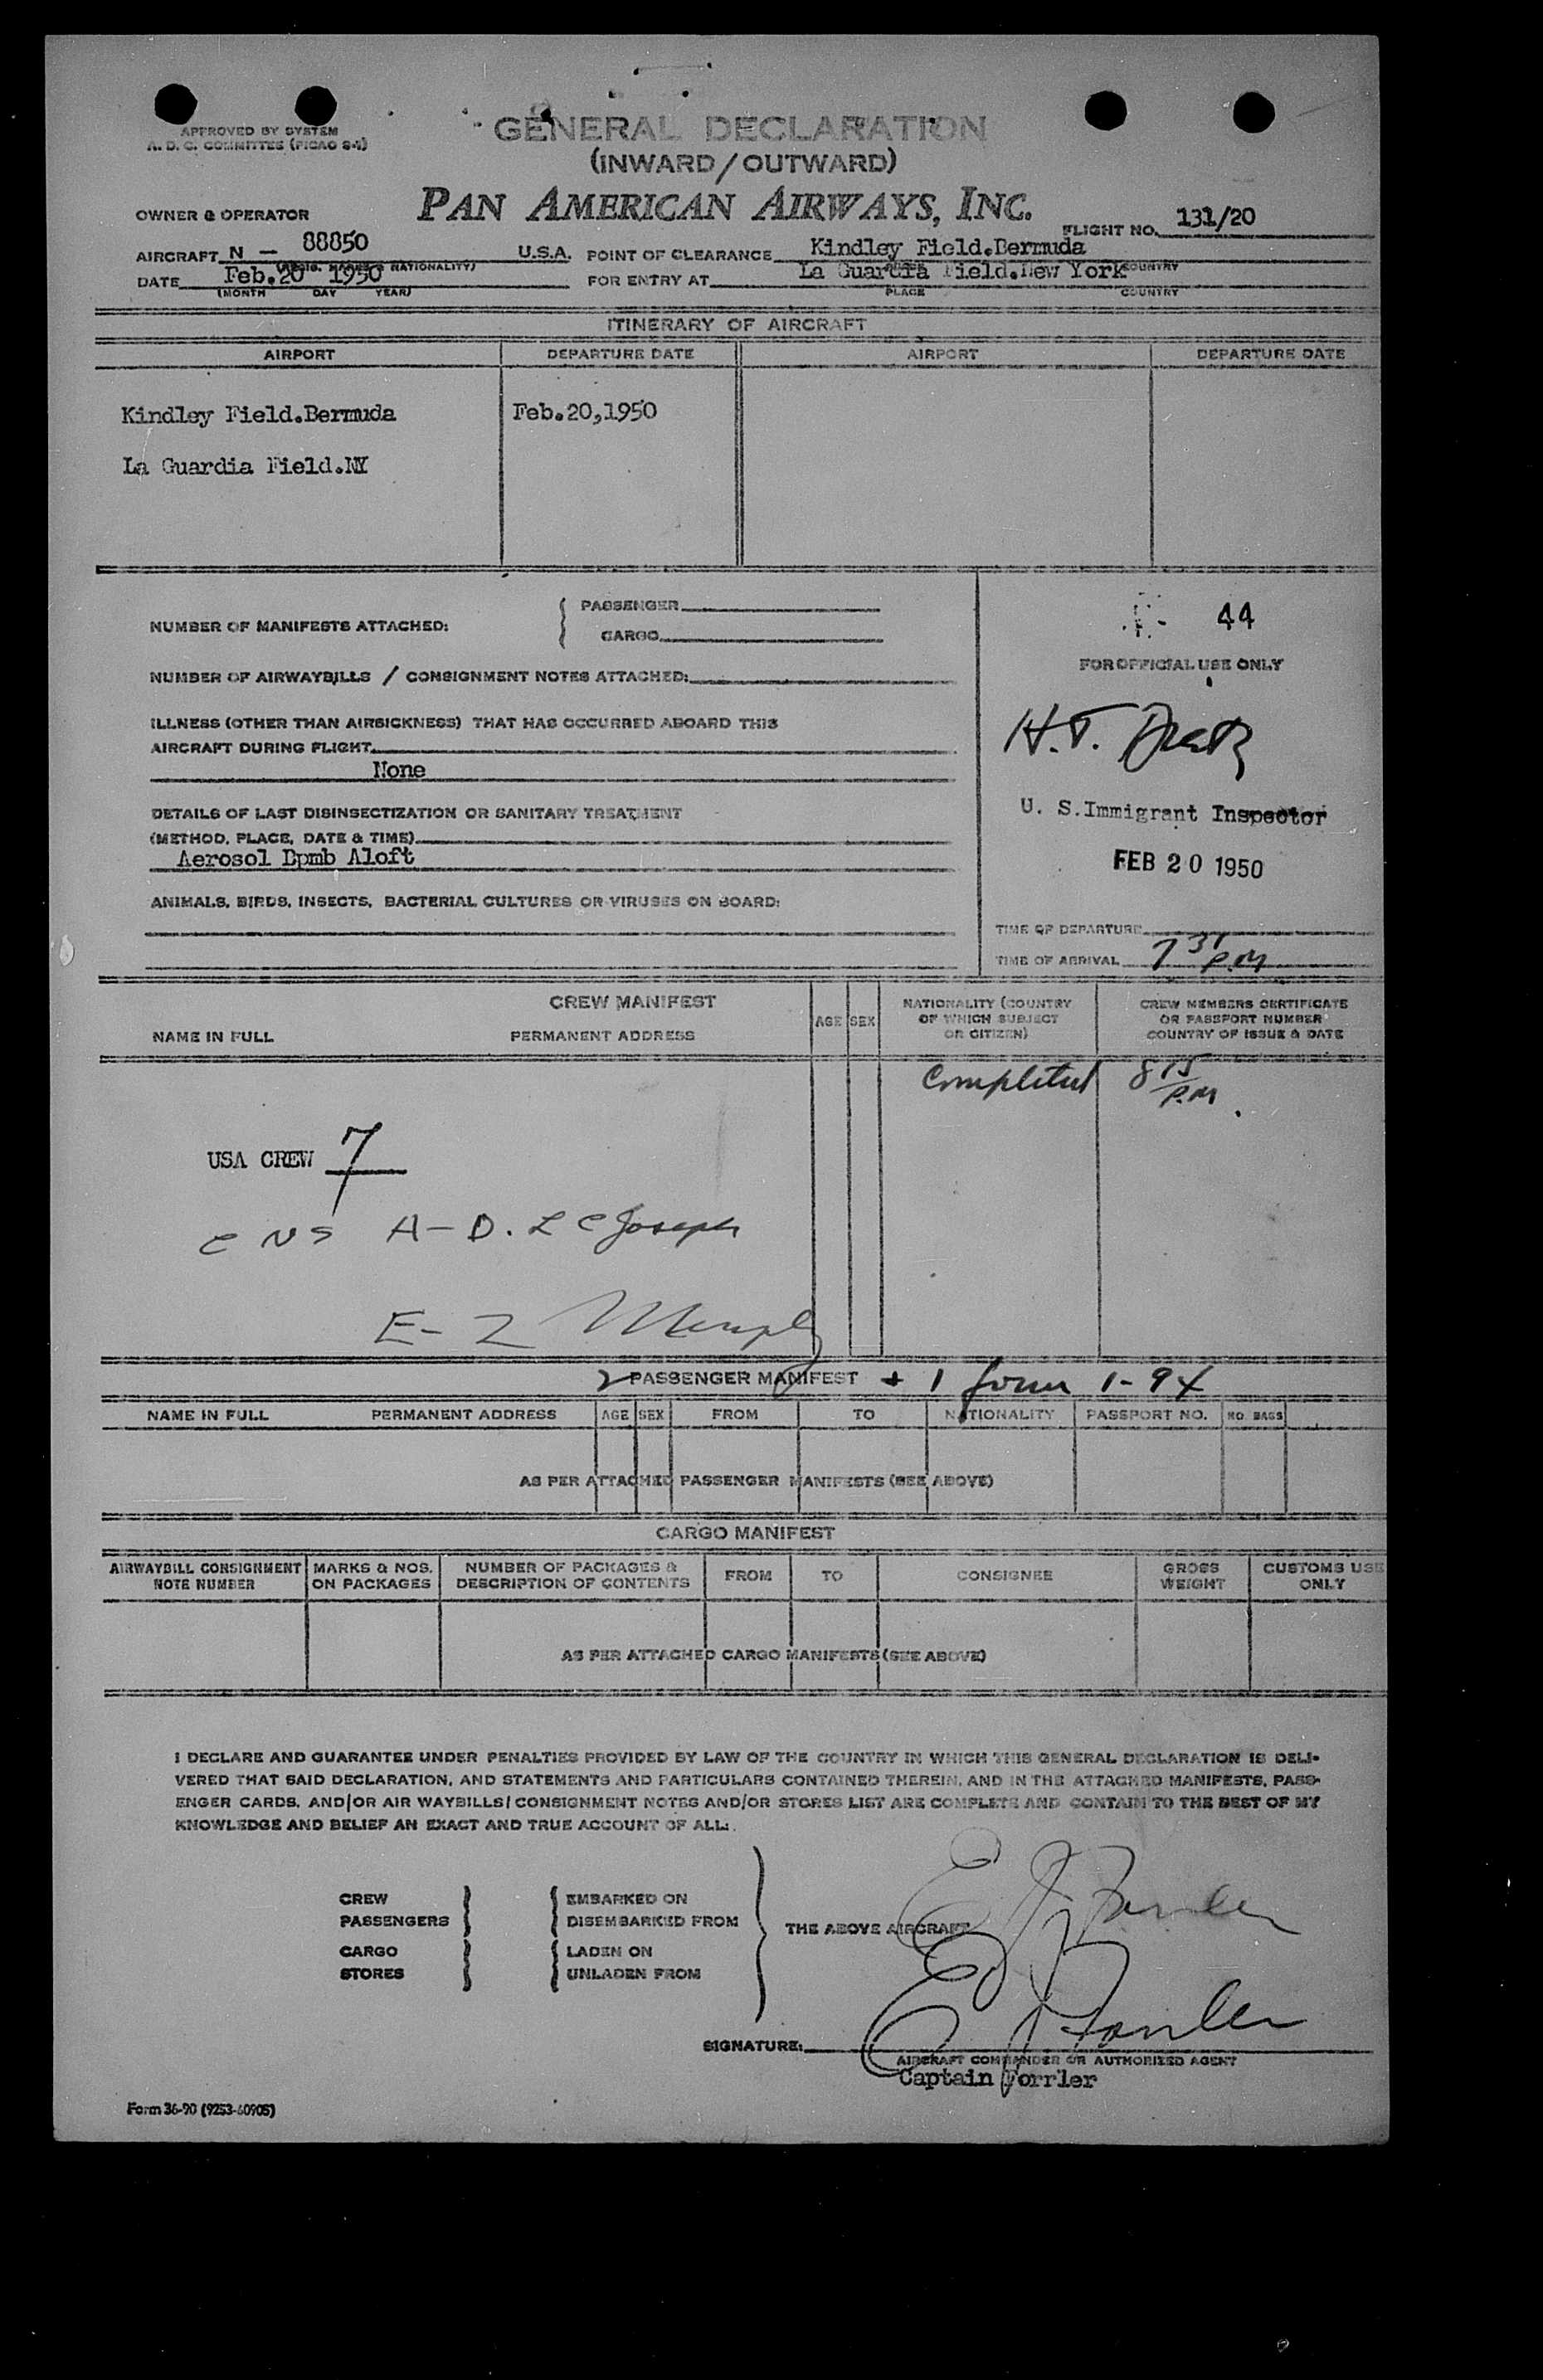 APPROVED BY SYSTEM
A. D. C. COMMITTEE (PICAO S-1)
GENERAL DECLARATION
(INWARD/OUTWARD)
PAN AMERICAN AIRWAYS, INC.
OWNER & OPERATOR
FLIGHT NO. 131/20
AIRCRAFT N - 88850 U.S.A. POINT OF CLEARANCE Kindley Field.Bermuda
NATIONALITY) COUNTRY
DATE Feb.20 1950 FOR ENTRY AT La Guardia Field.New York
(MONTH DAY YEAR) PLACE COUNTRY
ITINERARY OF AIRCRAFT
AIRPORT DEPARTURE DATE AIRPORT DEPARTURE DATE
Kindley Field.Bermuda Feb.20,1950
La Guardia Field.NY
NUMBER OF MANIFESTS ATTACHED: PASSENGER
CARGO
44
FOR OFFICIAL USE ONLY
NUMBER OF AIRWAYBILLS / CONSIGNMENT NOTES ATTACHED:
ILLNESS (OTHER THAN AIRSICKNESS) THAT HAS OCCURRED ABOARD THIS
AIRCRAFT DURING FLIGHT
None
H.T.
DETAILS OF LAST DISINSECTIZATION OR SANITARY TREATMENT
(METHOD, PLACE, DATE & TIME)
Aerosol Bpmb Aloft
U. S.Immigrant Inspector
FEB 20 1950
ANIMALS, BIRDS, INSECTS, BACTERIAL CULTURES OR VIRUSES ON BOARD:
TIME OF DEPARTURE
TIME OF ARRIVAL 7 31 P.M
CREW MANIFEST
NAME IN FULL PERMANENT ADDRESS AGE SEX
NATIONALITY (COUNTRY
OF WHICH SUBJECT
OR CITIZEN)
CREW MEMBERS CERTIFICATE
OR PASSPORT NUMBER
COUNTRY OF ISSUE & DATE
Completed 8 15 P.M.
USA CREW 7
C N S A-D. L C Joseph
E- 2 Murphy
2 PASSENGER MANIFEST + 1 form 1-94
NAME IN FULL PERMANENT ADDRESS AGE SEX FROM TO NATIONALITY PASSPORT NO. NO. BAGS
AS PER ATTACHED PASSENGER MANIFESTS (SEE ABOVE)
CARGO MANIFEST
AIRWAYBILL CONSIGNMENT
NOTE NUMBER
MARKS & NOS.
ON PACKAGES
NUMBER OF PACKAGES &
DESCRIPTION OF CONTENTS
FROM TO CONSIGNEE
GROSS
WEIGHT
CUSTOMS USE
ONLY
AS PER ATTACHED CARGO MANIFESTS (SEE ABOVE)
I DECLARE AND GUARANTEE UNDER PENALTIES PROVIDED BY LAW OF THE COUNTRY IN WHICH THIS GENERAL DECLARATION IS DELI-
VERED THAT SAID DECLARATION, AND STATEMENTS AND PARTICULARS CONTAINED THEREIN, AND IN THE ATTACHED MANIFESTS, PASS-
ENGER CARDS, AND/OR AIR WAYBILLS/CONSIGNMENT NOTES AND/OR STORES LIST ARE COMPLETE AND CONTAIN TO THE BEST OF MY
KNOWLEDGE AND BELIEF AN EXACT AND TRUE ACCOUNT OF ALL:
CREW EMBARKED ON
PASSENGERS DISEMBARKED FROM
THE ABOVE AIRCRAFT
CARGO LADEN ON
STORES UNLADEN FROM
SIGNATURE:
AIRCRAFT COMMANDER OR AUTHORIZED AGENT
Captain Forrler
Form 36-90 (9253-60905)